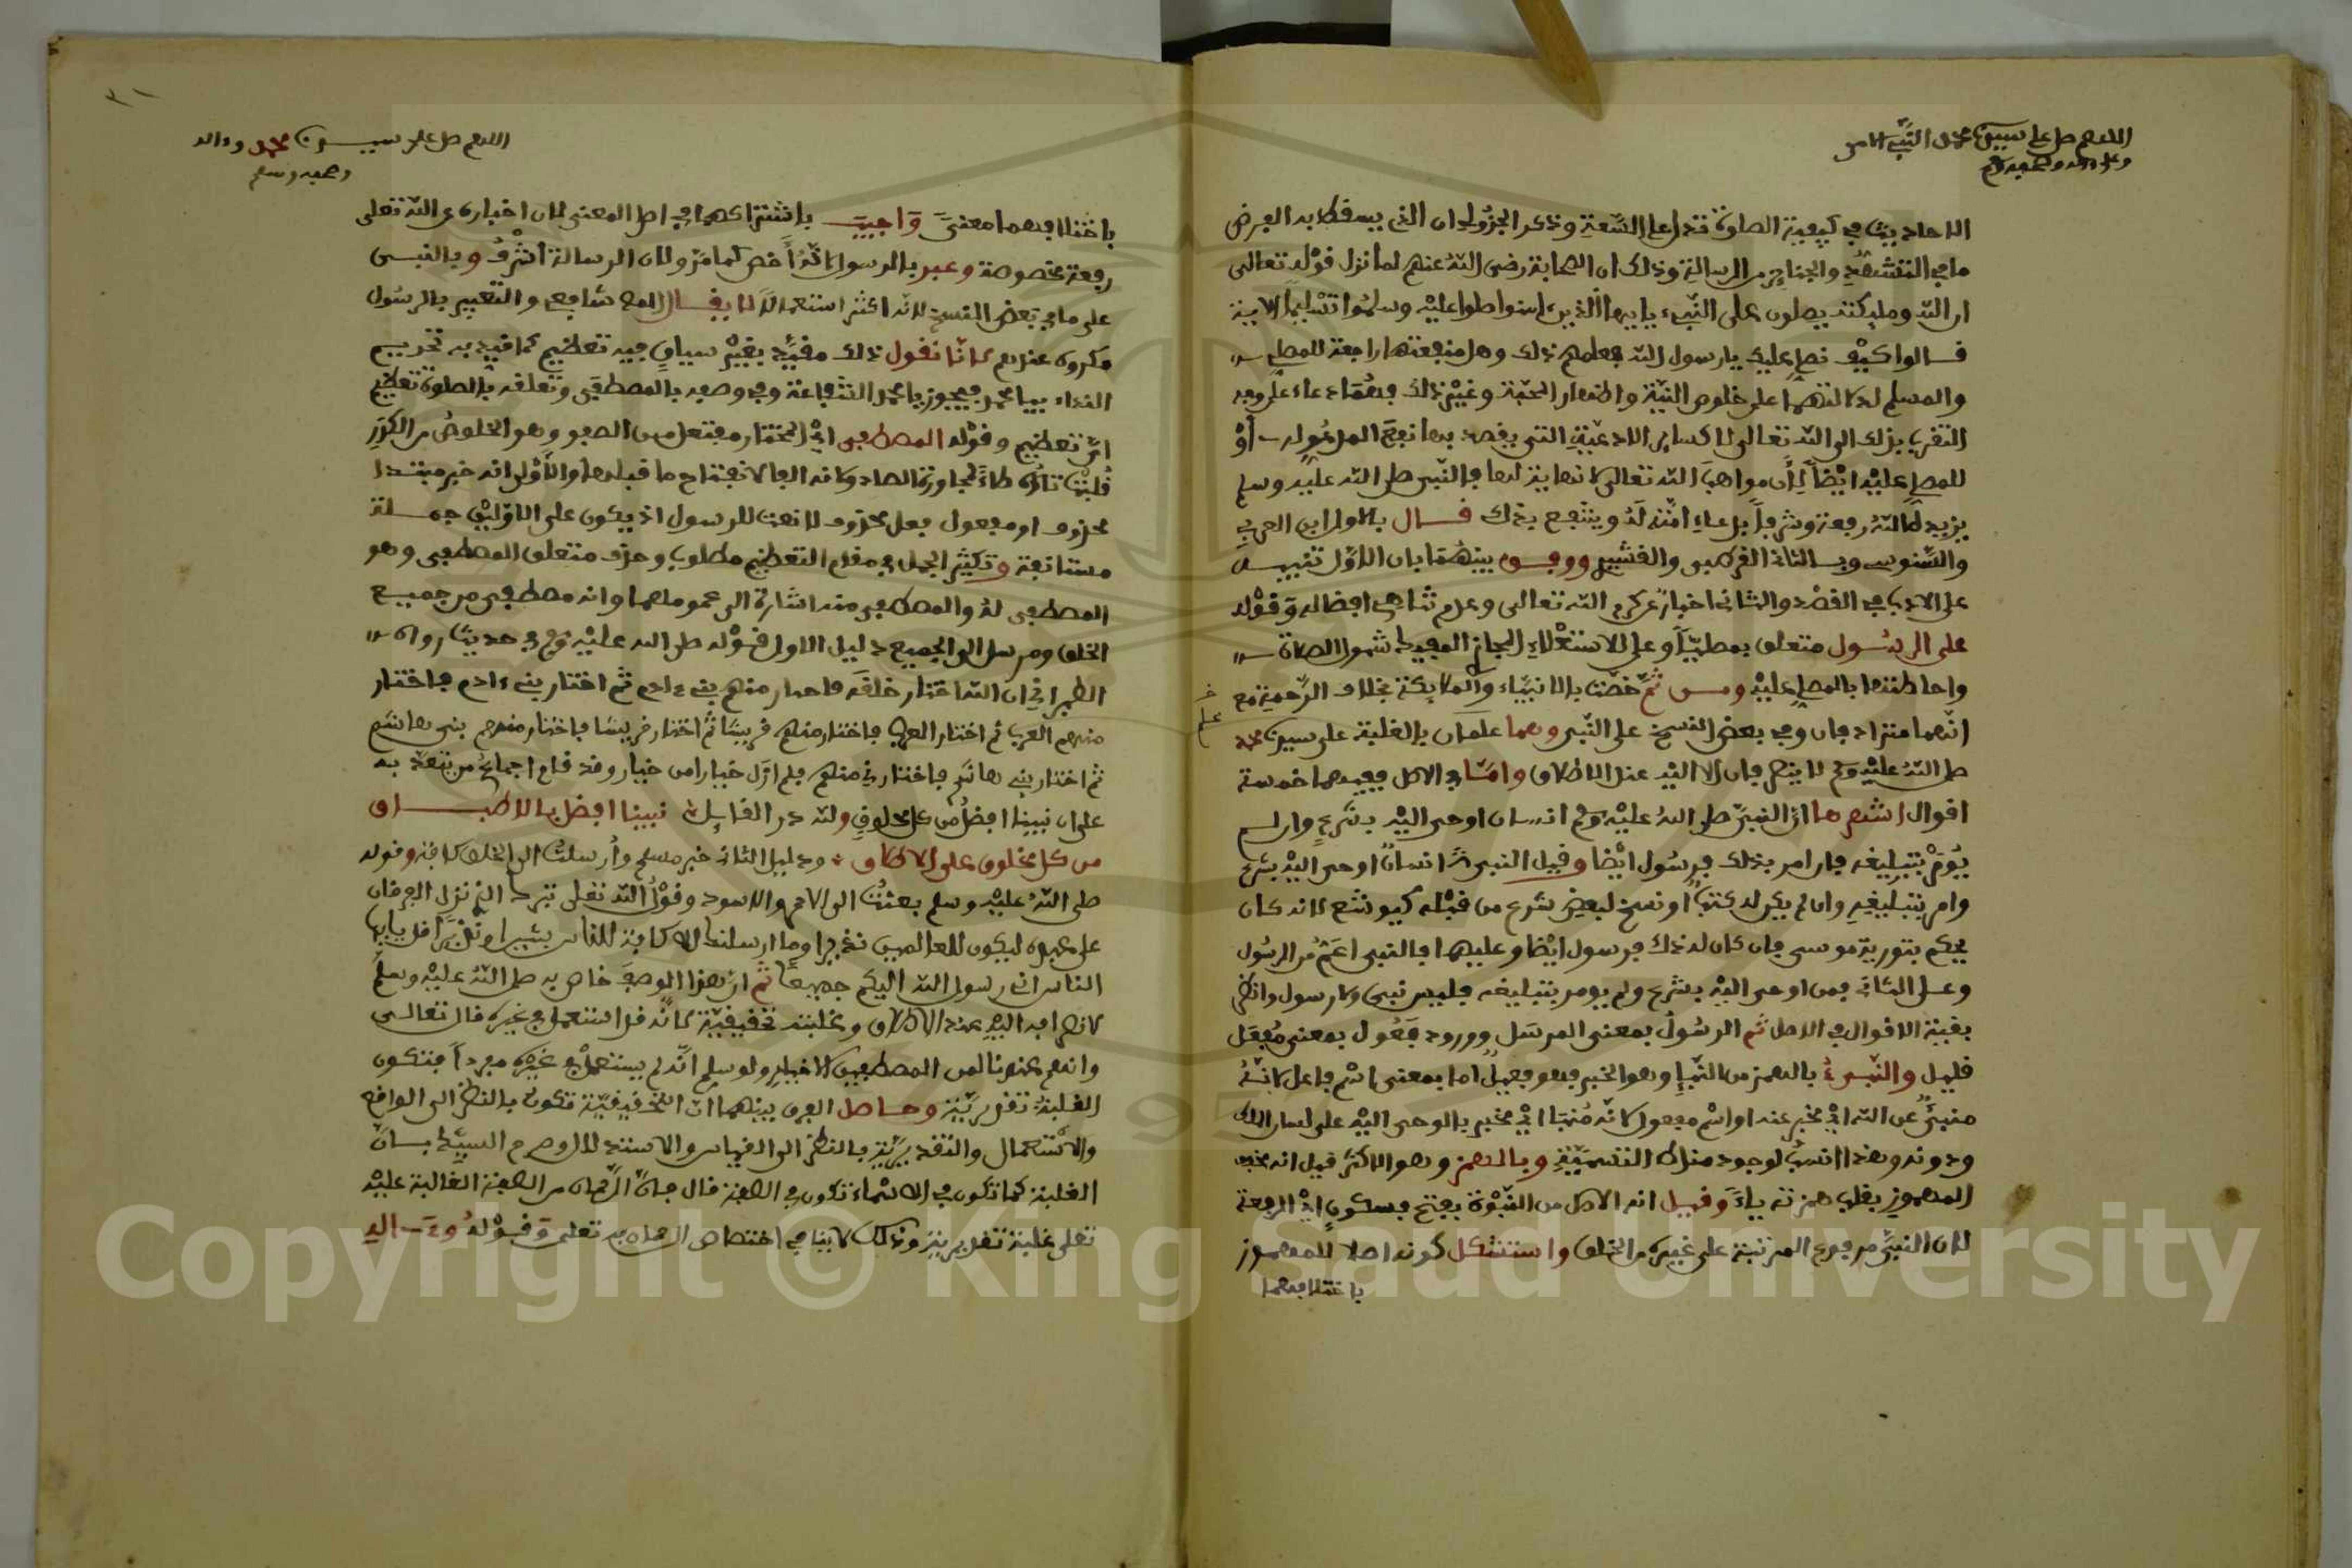 اللهم صل على سيدنا محمد النبي الامي
وعلى ءاله وصحبه وسلم
الاحاديث في كيفية الصلوة تدل على السعة وذكر الجزولي ان الذي يسقط به الفرض
ما في التشهد والجنائز من الرسالة وذلك ان الصحابة رضي الله عنهم لما نزل قوله تعالى
ان الله وملئكته يصلون على النبيء يايها الذين ءامنوا صلوا عليه وسلموا تسليما الاية
فالوا كيف نصلي عليك يارسول الله فعلمهم ذلك وهل منفعتها راجعة للمصلي
والمسلم لدلالتهما على خلوص النية واظهار المحبة وغير ذلك فهما دعاء على وجه
التقرب بذلك الى الله تعالى لا كسائر الادعية التي يقصد بها نفع المدعو له او
للمصلى عليه ايضا لان مواهب الله تعالى لا نهاية لها فالنبي صلى الله عليه وسلم
يزيده الله رفعة وشرفا بدعاء امته له وينتفع بذلك قال بالاول ابن العربي
والسنوسي وبالثاني القرطبي والقشيري ووفق بينهما بان الاول تنبيه
على الادب في القصد والثاني اخبار عن كرم الله تعالى وعدم تناهي افضاله وقوله
على الرسول متعلق بمصليا وعلى للاستعلاء المجازي المفيد شمول الصلاة
واحاطتها بالمصلى عليه ومن ثم خصت بالانبياء والملايكة بخلاف الرحمة مع
انهما مترادفان وفي بعض النسخ على النبي وهما علمان بالغلبة على سيدنا محمد
صلى الله عليه وسلم لا ينصرفان الا اليه عند الاطلاق وامــا في الاصل ففيهما خمسة
اقوال اشهرها ان النبي صلى الله عليه وسلم انسان اوحى اليه بشرع وان لم
يومر بتبليغه فان امر بذلك فرسول ايضا وقيل النبي انسان اوحى اليه بشرع
وامر بتبليغه وان لم يكن له كتاب او نسخ لبعض شرع من قبله كيوشع لانه كان
يحكم بتورية موسى فان كان له ذلك فرسول ايضا وعليهما فالنبي اعم من الرسول
وعلى الثاني فمن اوحى اليه بشرع ولم يومر بتبليغه فليس نبي ولا رسول وانظر
بقية الاقوال في الاصل ثم الرسول بمعنى المرسل وورود فعول بمعنى مفعل
قليل والنبيء بالهمز من النبإ وهو الخبر فهو فعيل اما بمعنى اسم فاعل لانه
منبئ عن الله اي مخبر عنه او اسم مفعول لانه منبا اي مخبر بالوحي اليه على لسان الملك
ودونه وهذا انسب لوجود مناط التسمية وبلا همز وهو الاكثر قيل انه مخفف
المهموز بقلب همزته ياء وقيل انه الاصل من النبوة بفتح فسكون اي الرفعة
لان النبي مرفوع المرتبة على غيره من الخلق واستشكل كونه اصلا للمهموز
باختلافهما
اللهم صل على سيدنا محمد وءاله
وصحبه وسلم
باختلافهما معنى واجيب باشتراكهما في اصل المعنى لان اخباره عن الله تعلى
رفعة مخصوصة وعبر بالرسول لانه اخص كما مر ولان الرسالة اشرف وبالنبي
على ما في بعض النسخ لانه اكثر استعمالا لا يقال والتعبير بالرسول
مكروه عندهم لانا نقول ذلك مقيد بغير سياق فيه تعظيم كما قيد به تحريم
النداء بيا محمد فيجوز يا محمد الشفاعة وفي وصفه بالمصطفى وتعلقه بالصلوة تعظيم
اي تعظيم وقوله المصطفى اي المختار مفتعل من الصفو وهو الخلوص من الكدر
قلبت تاؤه طاء لمجاورة الصاد ولامه الفا لانفتاح ما قبلها والاولى انه خبر مبتدا
محذوف او مفعول فعل محذوف لا نعت للرسول اذ يكون على الاولين جملة
مستانفة وتكثير الجمل في مقام التعظيم مطلوب وحذف متعلق المصطفى وهو
المصطفى له والمصطفى منه اشارة الى عمومهما وانه مصطفى من جميع
الخلق ومرسل الى الجميع دليل الاول قوله صلى الله عليه وسلم في حديث رواه
الطبراني ان الله اختار خلقه فاختار منهم بني ءادم ثم اختار بني ءادم فاختار
منهم العرب ثم اختار العرب فاختار منهم قريشا ثم اختار قريشا فاختار منهم بني هاشم
ثم اختار بني هاشم فاختارني منهم فلم ازل خيارا من خيار وقد قام اجماع من يعتد به
على ان نبينا افضل من كل مخلوق ولله در القايل نبينا افضل بالاطبــاق
من كل مخلوق على الاطلاق ودليل الثاني خبر مسلم وارسلت الى الخلق كافة وقوله
صلى الله عليه وسلم بعثت الى الاحمر والاسود وقول الله تعلى تبرك الذي نزل الفرقان
على عبده ليكون للعالمين نذيرا وما ارسلناك الا كافة للناس بشيرا ونذيرا قل يايها
الناس اني رسول الله اليكم جميعا ثم ان هذا الوصف خاص به صلى الله عليه وسلم
لانصرافه اليه عند الاطلاق وغلبته تحقيقية لانه قد استعمل في غيره قال تعالى
وانهم عندنا لمن المصطفين الاخيار ولو سلم انه لم يستعمل في غيره مفردا فتكون
الغلبة تقديرية وحاصل الفرق بينهما ان التحقيقية تكون بالنظر الى الواقع
والاستعمال والتقديرية بالنظر الى القياس والاستدلال وصرح السيد بان
الغلبة كما تكون في الاسماء تكون في الصفة قال فان الرحمان من الصفة الغالبة عليه
تعلى غلبة تقديرية وذلك لا ينافي اختصاص الرحمان به تعلى وقوله وءاله